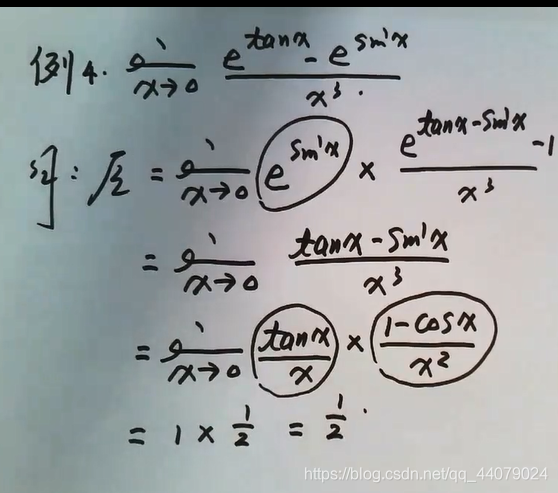 例4. lim x→0 (e^(tanx) - e^(sinx)) / x³.
解: 原 = lim x→0 e^(sinx) × (e^(tanx-sinx) - 1) / x³
= lim x→0 (tanx - sinx) / x³
= lim x→0 tanx / x × (1-cosx) / x²
= 1 × 1/2 = 1/2.
https://blog.csdn.net/qq_44079024